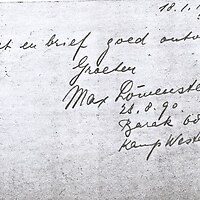 18.1.
et en brief goed ontv
Groeten
Max Löwenste
28.8.90
Barak 6
Kamp Weste